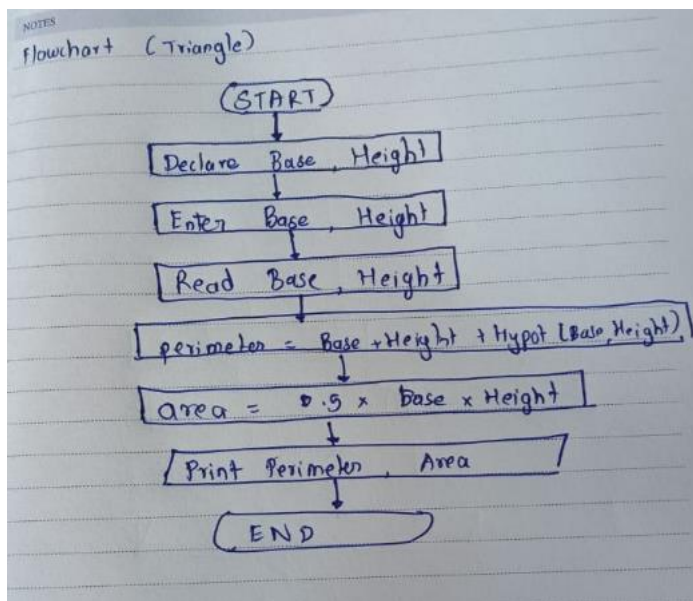 NOTES
Flowchart (Triangle)
START
Declare Base, Height
Enter Base, Height
Read Base, Height
perimeter = Base + Height + Hypot (Base, Height)
area = 0.5 × base × Height
Print Perimeter, Area
END